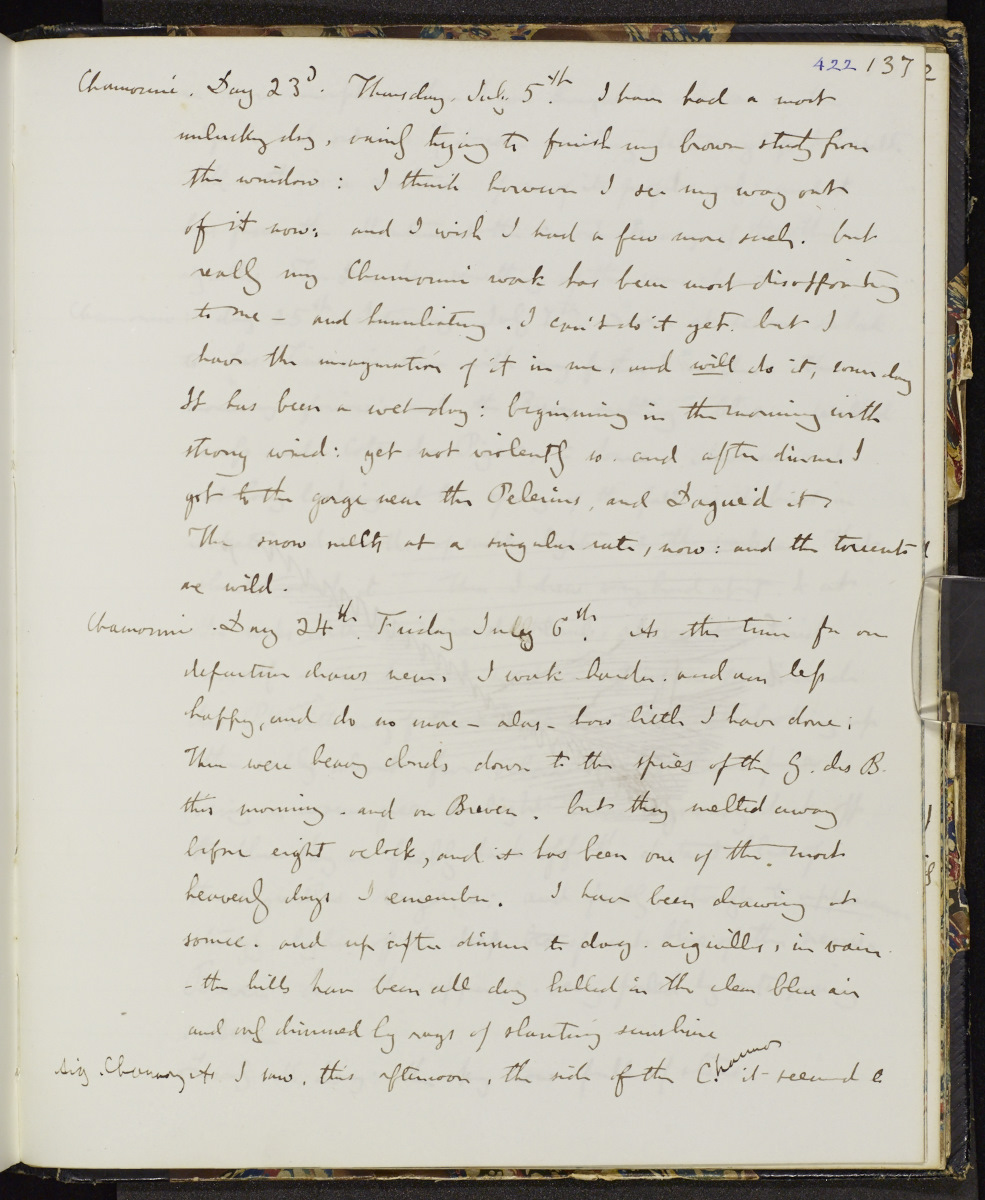 422 137
Chamouni. Day 23d. Thursday. July 5th. I have had a most
unlucky day, vainly trying to finish my brown study from
the window: I think however I see my way out
of it now: and I wish I had a few more such. but
really my Chamouni work has been most disappointing
to me - and humiliating. I can't do it yet. but I
have the imagination of it in me, and will do it, some day
It has been a wet day: beginning in the morning with
strong wind: yet not violently so. and after dinner I
got to the gorge near the Pelerins, and Dague'd it
The snow melts at a singular rate, now: and the torrents
are wild.
Chamouni. Day 24th. Friday July 6th. As the time for our
departure draws near, I work harder. and am less
happy, and do no more - alas - how little I have done:
There were heavy clouds down to the spires of the G. des B.
this morning - and on Breven. but they melted away
before eight oclock, and it has been one of the most
heavenly days I emember. I have been drawing at
source. and up after dinner to dag. aiguilles, in vain.
- the hills have been all day lulled in the clear blue air
and only dimmed by rays of slanting sunshine
Aig. Charmoz As I saw, this afternoon, the side of the Charmoz it seemed